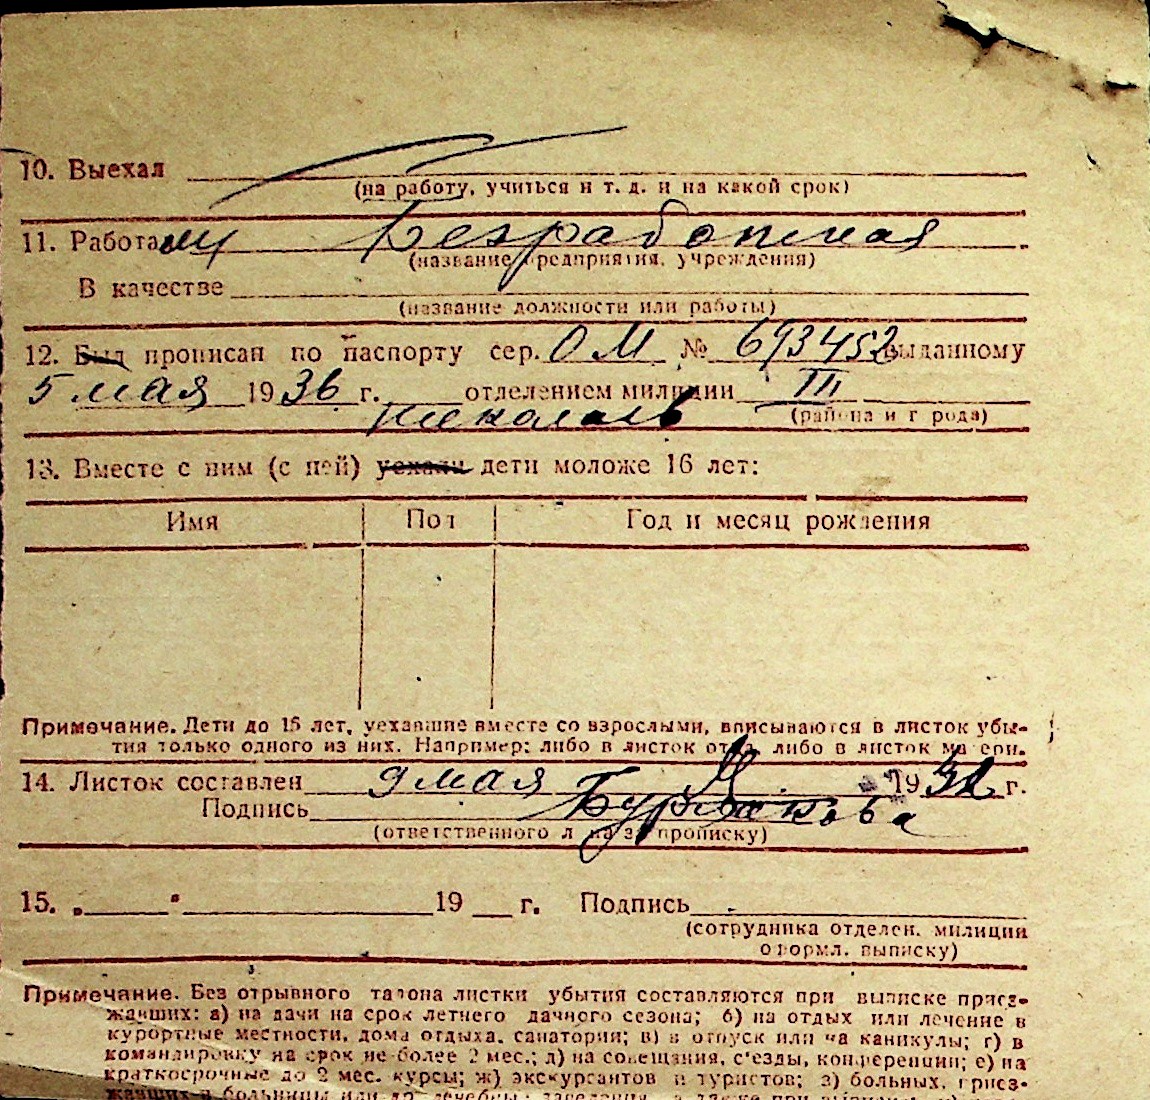 10. Выехал
(на работу, учиться и т. д. и на какой срок)
11. Работа Безработная
(название предприятия, учреждения)
В качестве
(название должности или работы)
12. Был прописан по паспорту сер. ОМ № 693452 выданному
5 мая 1936 г. отделением милиции III
(района и города)
13. Вместе с ним (с ней) уехали дети моложе 16 лет:
Имя Пол Год и месяц рождения
Примечание. Дети до 15 лет, уехавшие вместе со взрослыми, вписываются в листок убы-
тия только одного из них. Например: либо в листок отца, либо в листок матери.
14. Листок составлен 9 мая 19 г.
Подпись
(ответственного лица за прописку)
15. „ " 19 г. Подпись
(сотрудника отделен. милиции
оформл. выписку)
Примечание. Без отрывного талона листки убытия составляются при выписке приез-
жавших: а) на дачи на срок летнего дачного сезона; б) на отдых или лечение в
курортные местности, дома отдыха, санатории; в) в отпуск или на каникулы; г) в
командировку на срок не более 2 мес.; д) на совещания, с'езды, конференции; е) на
краткосрочные до 2 мес. курсы; ж) экскурсантов и туристов; з) больных, приез-
жавших в больницы или